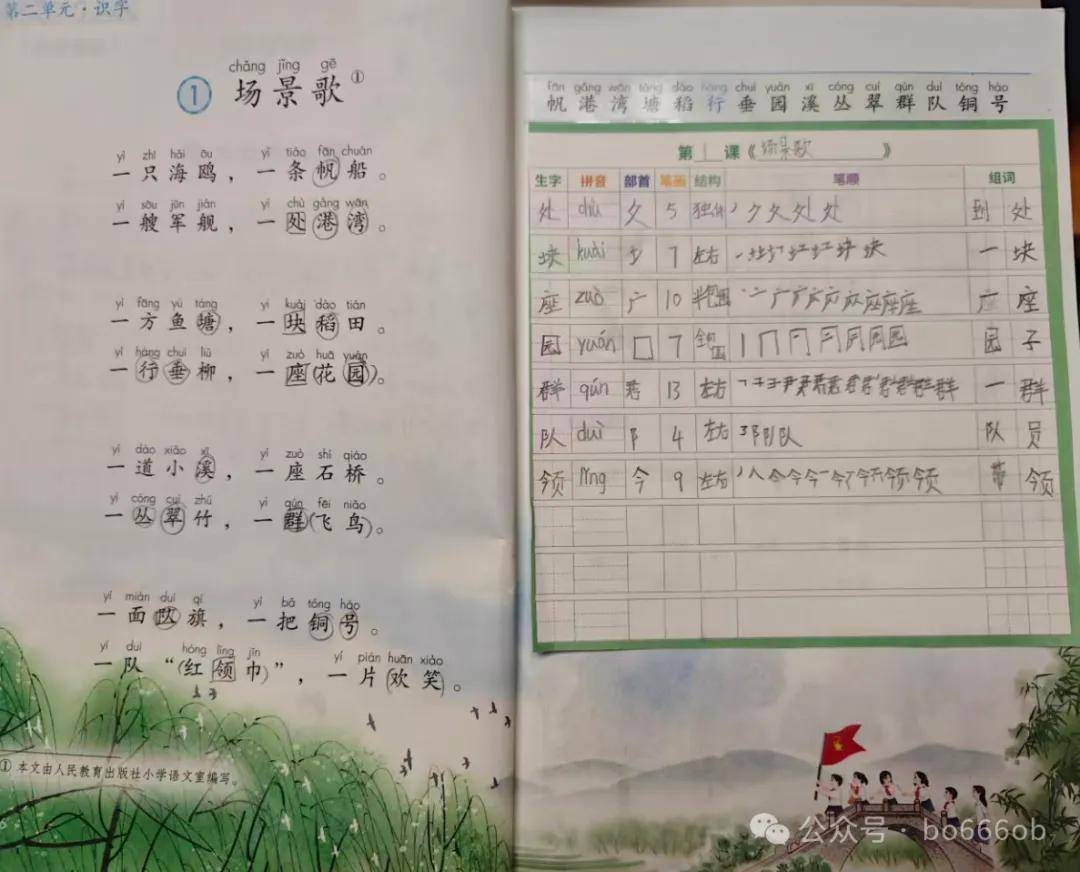 第二单元·识字
chǎng jǐng gē
① 场景歌①
yì zhī hǎi ōu yì tiáo fān chuán
一只海鸥，一条帆船。
yì sōu jūn jiàn yí chù gǎng wān
一艘军舰，一处港湾。
yì fāng yú táng yí kuài dào tián
一方鱼塘，一块稻田。
yì háng chuí liǔ yí zuò huā yuán
一行垂柳，一座花园。
yí dào xiǎo xī yí zuò shí qiáo
一道小溪，一座石桥。
yì cóng cuì zhú yì qún fēi niǎo
一丛翠竹，一群飞鸟。
yí miàn duì qí yì bǎ tóng hào
一面队旗，一把铜号。
yí duì hóng lǐng jīn yí piàn huān xiào
一队“红领巾”，一片欢笑。
① 本文由人民教育出版社小学语文室编写。
fān gǎng wān táng dào háng chuí yuán xī cóng cuì qún duì tóng hào
帆港湾塘稻行垂园溪丛翠群队铜号
第1课《场景歌》
生字 拼音 部首 笔画 结构 笔顺 组词
处 chù 夂 5 独体 到处
块 kuài 土 7 左右 一块
座 zuò 广 10 半包围 座
园 yuán 囗 7 全包围 园子
群 qún 君 13 左右 一群
队 duì 阝 4 左右 队员
领 lǐng 今 9 左右 带领
公众号·bo666ob